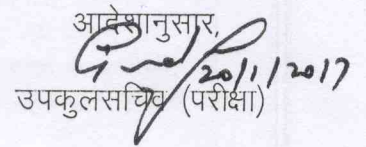 आदेशानुसार,
20/1/2017
उपकुलसचिव (परीक्षा)